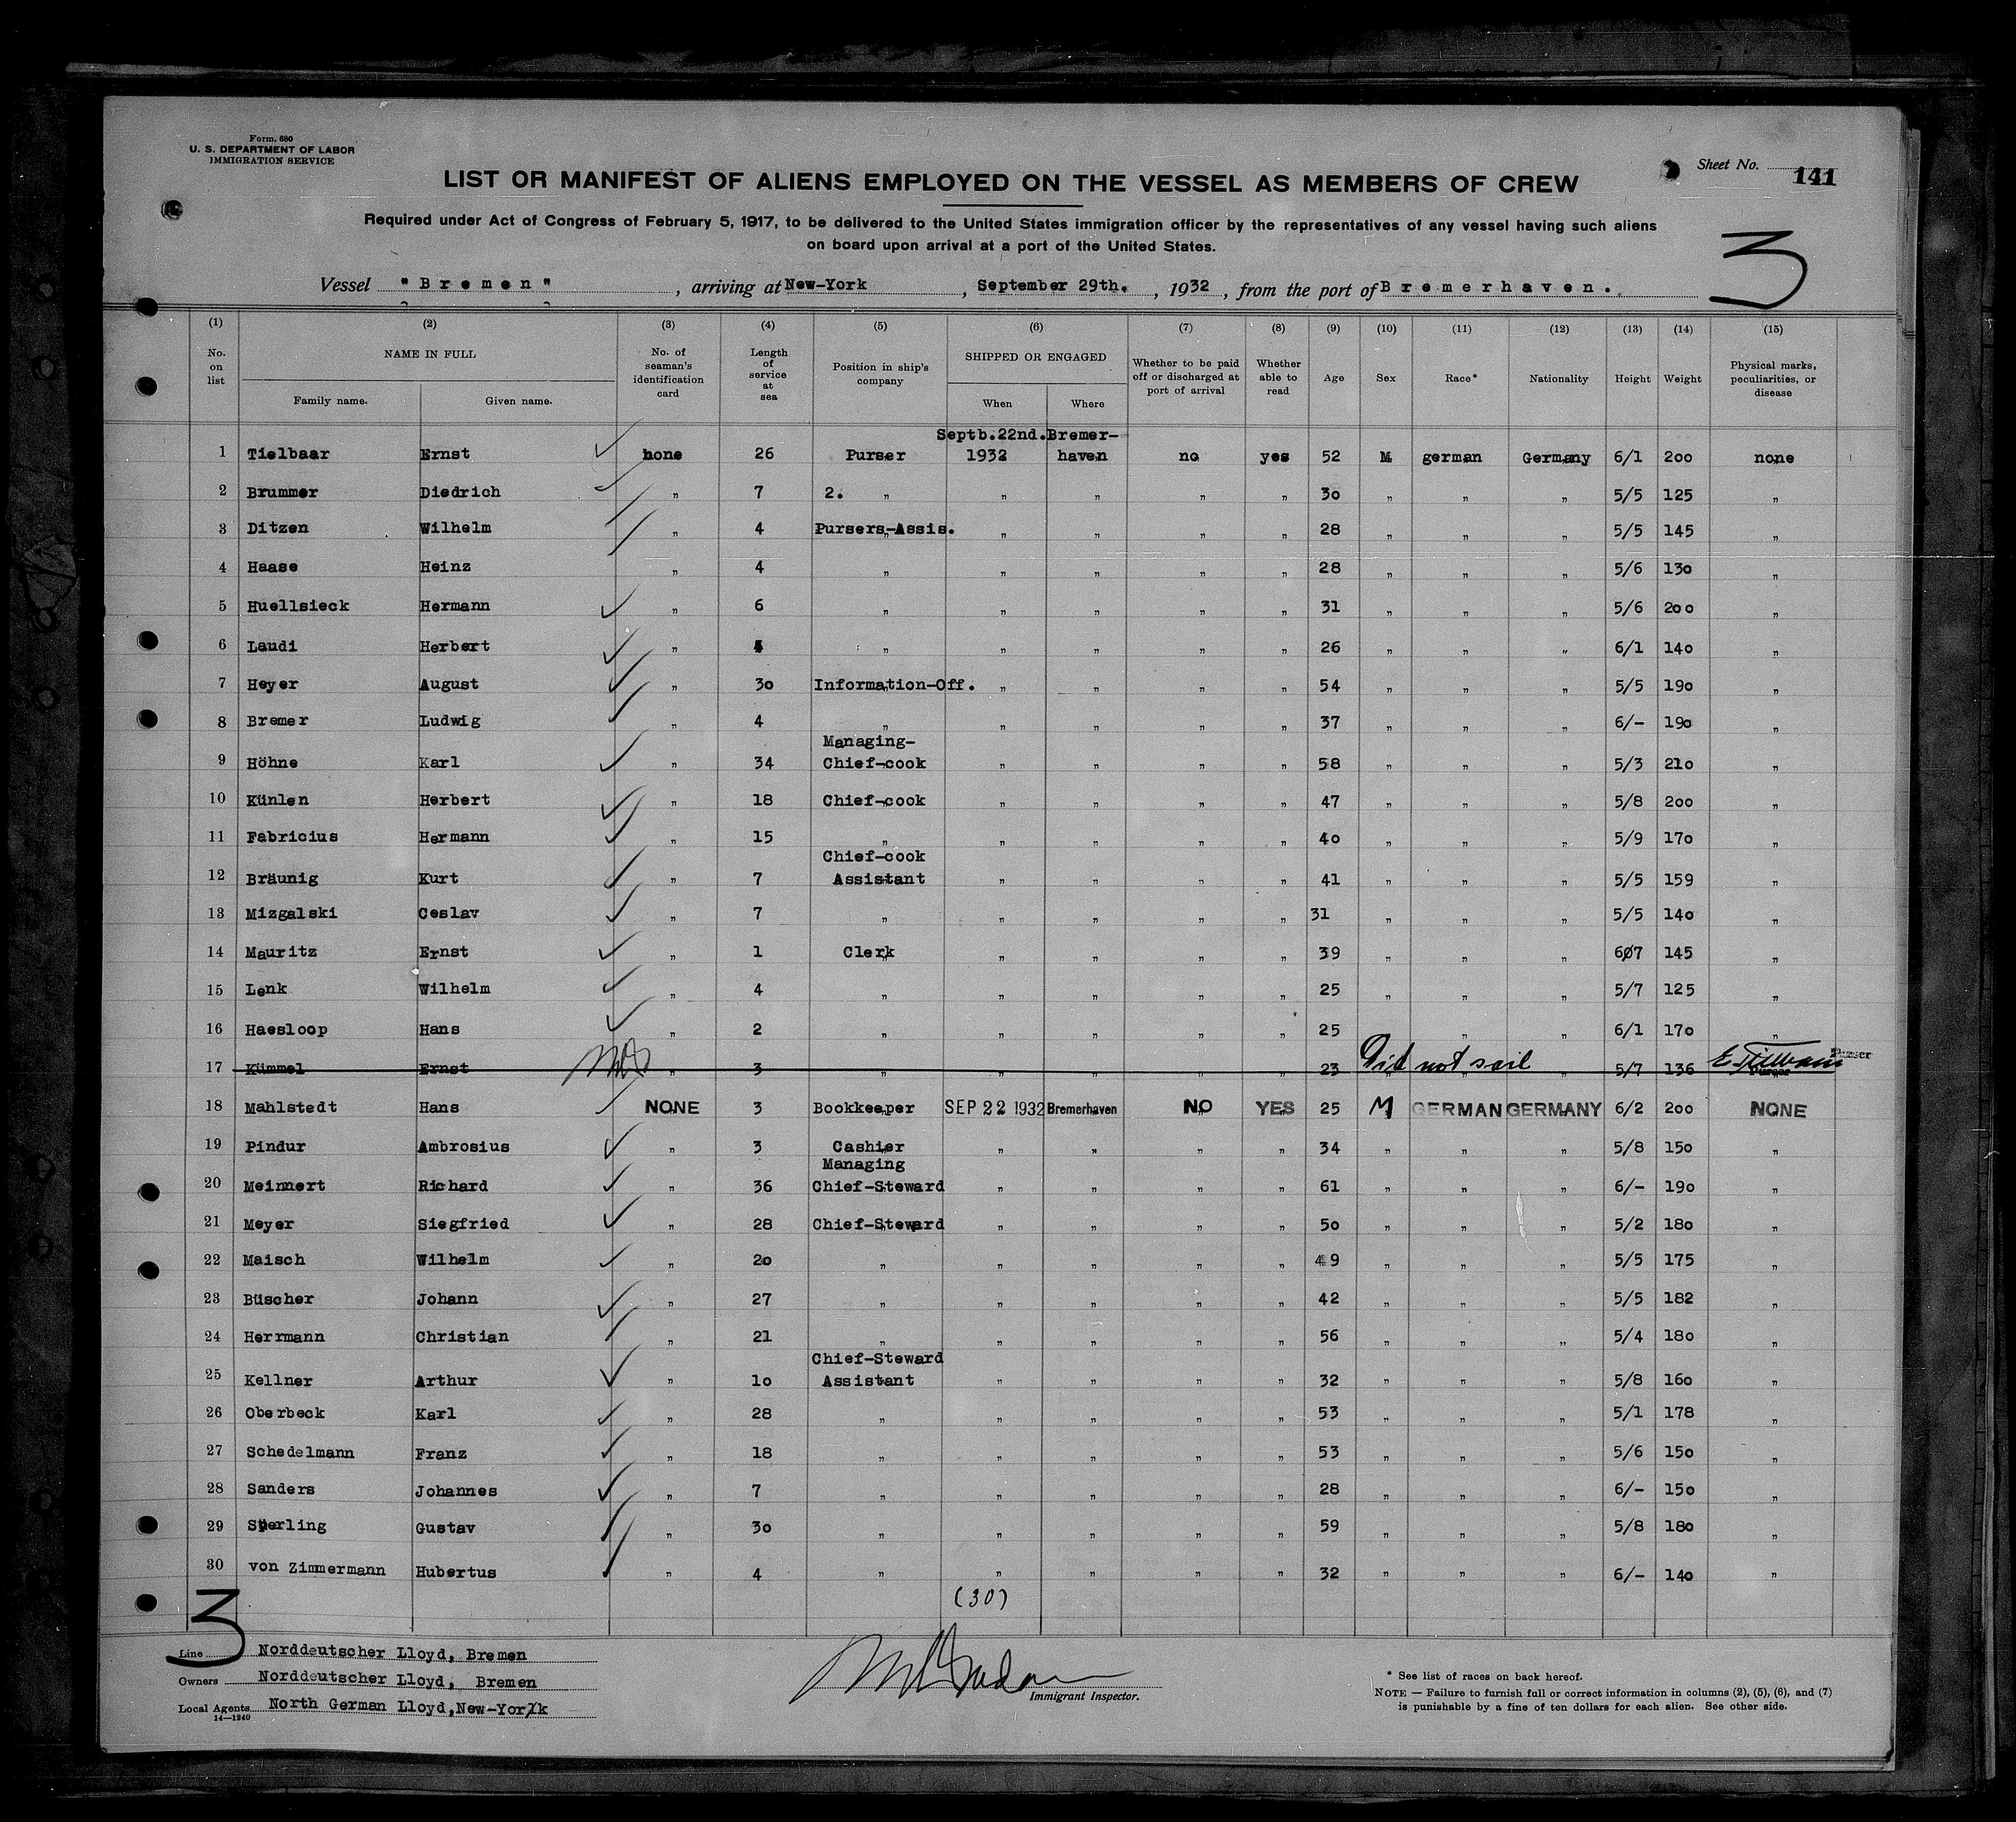 Form. 680
U. S. DEPARTMENT OF LABOR
IMMIGRATION SERVICE
Sheet No. 141
LIST OR MANIFEST OF ALIENS EMPLOYED ON THE VESSEL AS MEMBERS OF CREW
Required under Act of Congress of February 5, 1917, to be delivered to the United States immigration officer by the representatives of any vessel having such aliens
on board upon arrival at a port of the United States.
3
Vessel "Bremen", arriving at New-York, September 29th., 1932, from the port of Bremerhaven.
(1) (2) (3) (4) (5) (6) (7) (8) (9) (10) (11) (12) (13) (14) (15)
No. on list NAME IN FULL Family name. Given name. No. of seaman's identification card Length of service at sea Position in ship's company SHIPPED OR ENGAGED When Where Whether to be paid off or discharged at port of arrival Whether able to read Age Sex Race* Nationality Height Weight Physical marks, peculiarities, or disease
Septb.22nd. Bremer-
1 Tielbaar Ernst none 26 Purser 1932 haven no yes 52 M german Germany 6/1 200 none
2 Brummer Diedrich " 7 2. " " " " " 30 " " " 5/5 125 "
3 Ditzen Wilhelm " 4 Pursers-Assis. " " " " 28 " " " 5/5 145 "
4 Haase Heinz " 4 " " " " " 28 " " " 5/6 130 "
5 Huellsieck Hermann " 6 " " " " " 31 " " " 5/6 200 "
6 Laudi Herbert " " " " " " 26 " " " 6/1 140 "
7 Heyer August " 30 Information-Off. " " " " 54 " " " 5/5 190 "
8 Bremer Ludwig " 4 " " " " " 37 " " " 6/- 190 "
Managing-
9 Höhne Karl " 34 Chief-cook " " " " 58 " " " 5/3 210 "
10 Künlen Herbert " 18 Chief-cook " " " " 47 " " " 5/8 200 "
11 Fabricius Hermann " 15 " " " " " 40 " " " 5/9 170 "
Chief-cook
12 Bräunig Kurt " 7 Assistant " " " " 41 " " " 5/5 159 "
13 Mizgalski Ceslav " 7 " " " " " 31 " " " 5/5 140 "
14 Mauritz Ernst " 1 Clerk " " " " 39 " " " 607 145 "
15 Lenk Wilhelm " 4 " " " " " 25 " " " 5/7 125 "
16 Haesloop Hans " 2 " " " " " 25 " " " 6/1 170 "
17 Kümmel Ernst 3 " " " " " 23 Did not sail 5/7 136 Purser
18 Mahlstedt Hans NONE 3 Bookkeeper SEP 22 1932 Bremerhaven NO YES 25 M GERMAN GERMANY 6/2 200 NONE
19 Pindur Ambrosius " 3 Cashier " " " " 34 " " " 5/8 150 "
Managing
20 Meinnert Richard " 36 Chief-Steward " " " " 61 " " " 6/- 190 "
21 Meyer Siegfried " 28 Chief-Steward " " " " 50 " " " 5/2 180 "
22 Maisch Wilhelm " 20 " " " " " 49 " " " 5/5 175 "
23 Büscher Johann " 27 " " " " " 42 " " " 5/5 182 "
24 Herrmann Christian " 21 " " " " " 56 " " " 5/4 180 "
Chief-Steward
25 Kellner Arthur " 10 Assistant " " " " 32 " " " 5/8 160 "
26 Oberbeck Karl " 28 " " " " " 53 " " " 5/1 178 "
27 Schedelmann Franz " 18 " " " " " 53 " " " 5/6 150 "
28 Sanders Johannes " 7 " " " " " 28 " " " 6/- 150 "
29 Sperling Gustav " 30 " " " " " 59 " " " 5/8 180 "
30 von Zimmermann Hubertus " 4 " " " " " 32 " " " 6/- 140 "
(30)
3
Line Norddeutscher Lloyd, Bremen
Owners Norddeutscher Lloyd, Bremen
Local Agents North German Lloyd, New-York
14—1240
Immigrant Inspector.
* See list of races on back hereof.
NOTE — Failure to furnish full or correct information in columns (2), (5), (6), and (7)
is punishable by a fine of ten dollars for each alien. See other side.